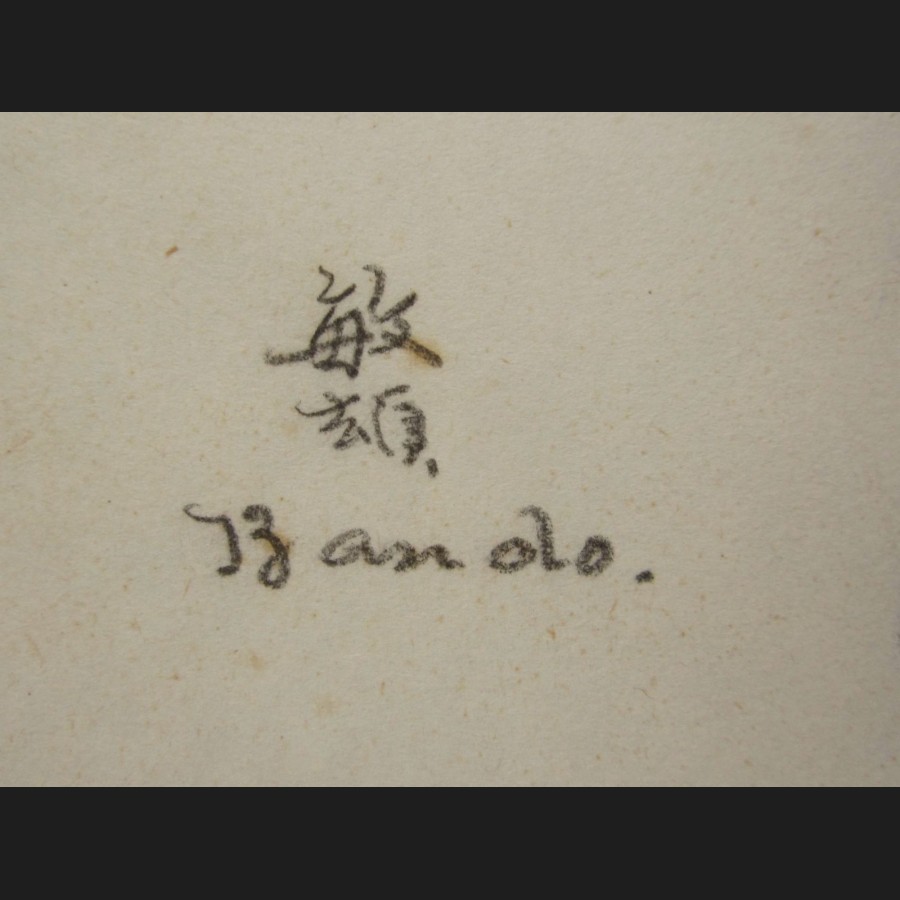 敏
雄.
Bando.